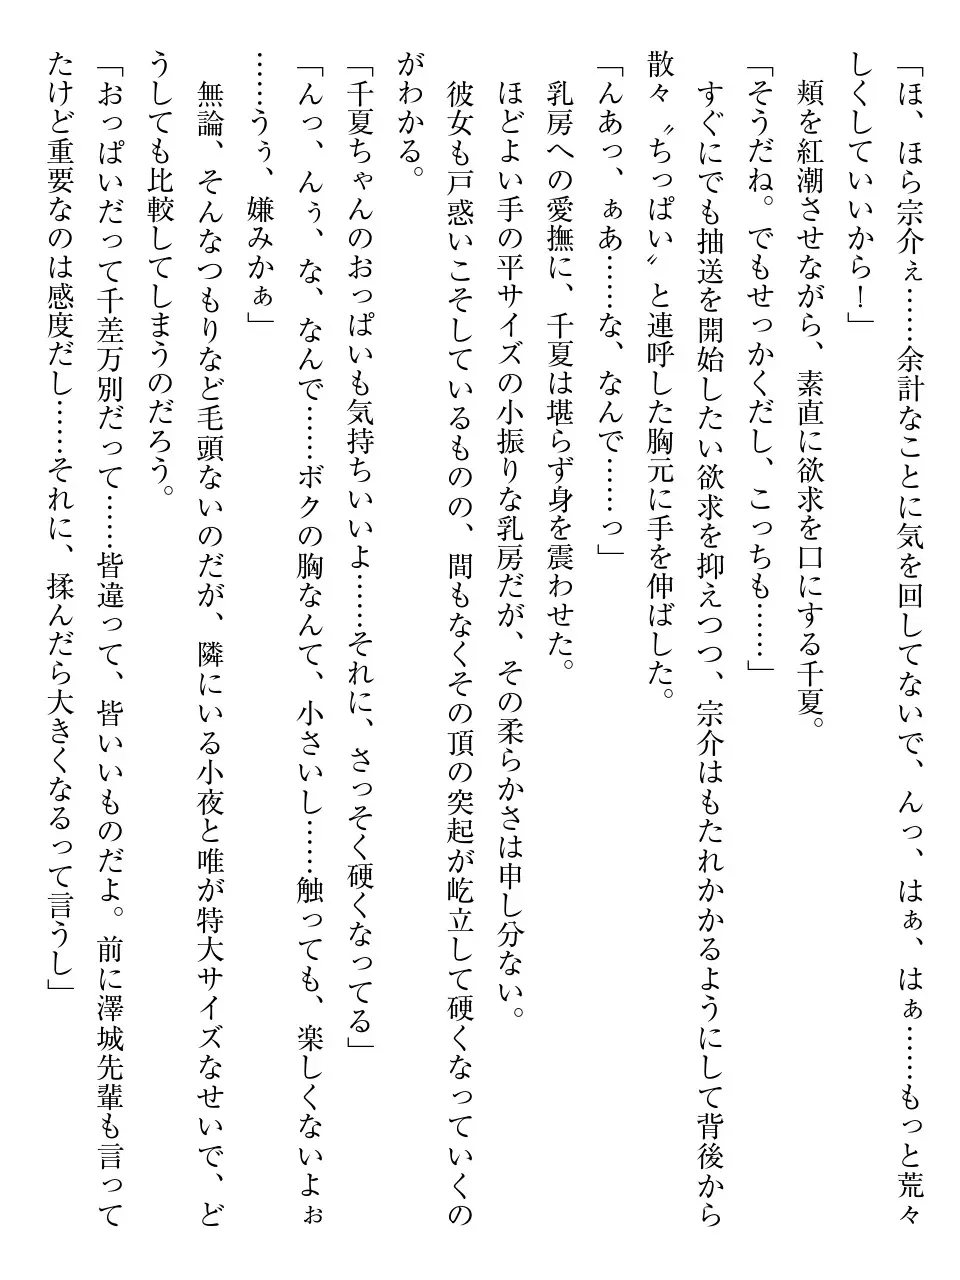 「ほ、ほら宗介ぇ……余計なことに気を回してないで、んっ、はぁ、はぁ……もっと荒々
しくしていいから！」
頬を紅潮させながら、素直に欲求を口にする千夏。
「そうだね。でもせっかくだし、こっちも……」
すぐにでも抽送を開始したい欲求を抑えつつ、宗介はもたれかかるようにして背後から
散々〝ちっぱい〟と連呼した胸元に手を伸ばした。
「んあっ、ぁあ……な、なんで……っ」
乳房への愛撫に、千夏は堪らず身を震わせた。
ほどよい手の平サイズの小振りな乳房だが、その柔らかさは申し分ない。
彼女も戸惑いこそしているものの、間もなくその頂の突起が屹立して硬くなっていくの
がわかる。
「千夏ちゃんのおっぱいも気持ちいいよ……それに、さっそく硬くなってる」
「んっ、んぅ、な、なんで……ボクの胸なんて、小さいし……触っても、楽しくないよぉ
……うぅ、嫌みかぁ」
無論、そんなつもりなど毛頭ないのだが、隣にいる小夜と唯が特大サイズなせいで、ど
うしても比較してしまうのだろう。
「おっぱいだって千差万別だって……皆違って、皆いいものだよ。前に澤城先輩も言って
たけど重要なのは感度だし……それに、揉んだら大きくなるって言うし」